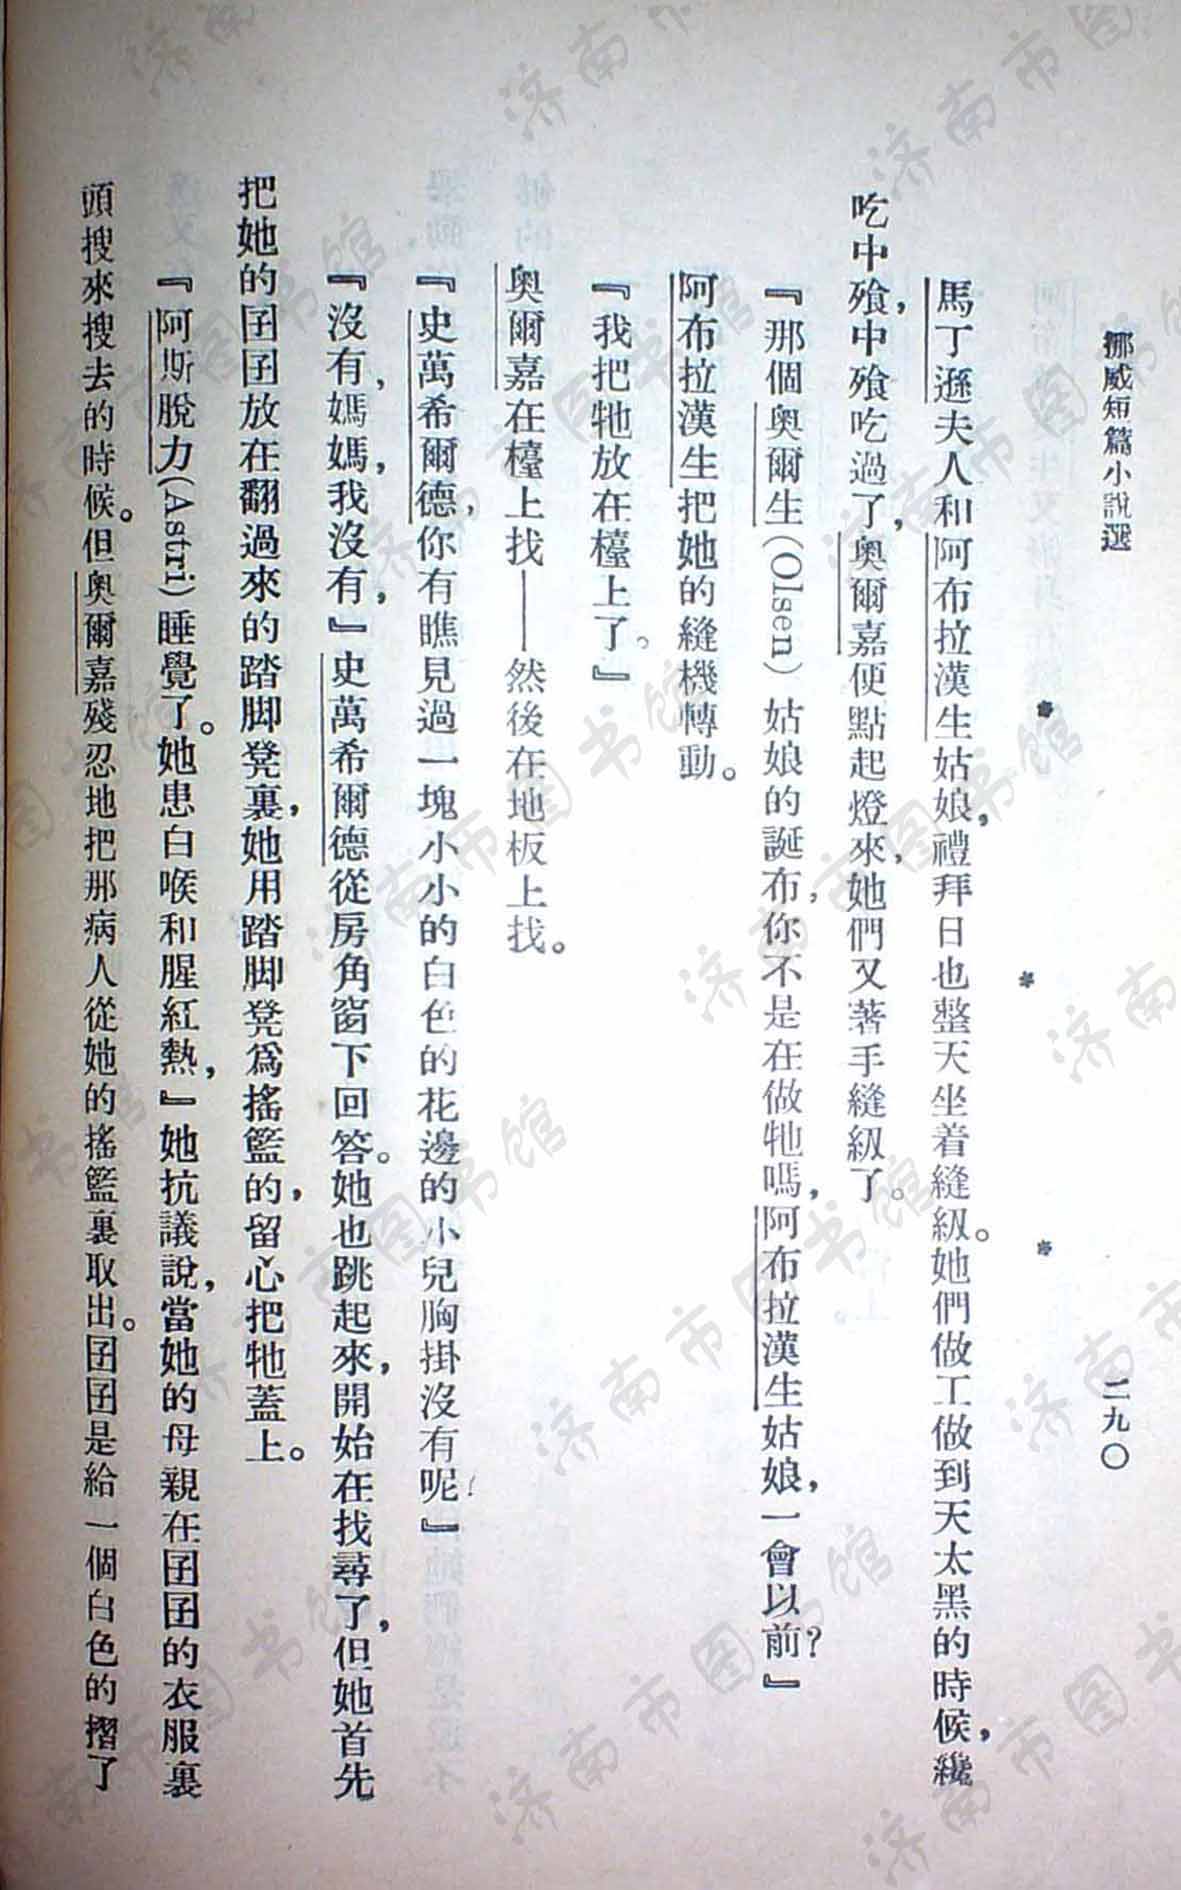 挪威短篇小說選
二九〇
* * *
馬丁遜夫人和阿布拉漢生姑娘，禮拜日也整天坐着縫級。她們做工做到天太黑的時候，纔
吃中飱，中飱吃過了，奧爾嘉便點起燈來，她們又著手縫級了。
『那個奧爾生(Olsen)姑娘的誕布，你不是在做牠嗎，阿布拉漢生姑娘，一會以前？』
阿布拉漢生把她的縫機轉動。
『我把牠放在檯上了。』
奧爾嘉在檯上找——然後在地板上找。
『史萬希爾德，你有瞧見過一塊小小的白色的花邊的小兒胸掛沒有呢！』
『沒有，媽媽，我沒有，』史萬希爾德從房角窗下回答。她也跳起來，開始在找尋了，但她首先
把她的囝囝放在翻過來的踏脚凳裏，她用踏脚凳爲搖籃的，留心把牠蓋上。
『阿斯脫力(Astri)睡覺了。她患白喉和腥紅熱，』她抗議說，當她的母親在囝囝的衣服裏
頭搜來搜去的時候。但奧爾嘉殘忍地把那病人從她的搖籃裏取出。囝囝是給一個白色的摺了
济南市图书馆